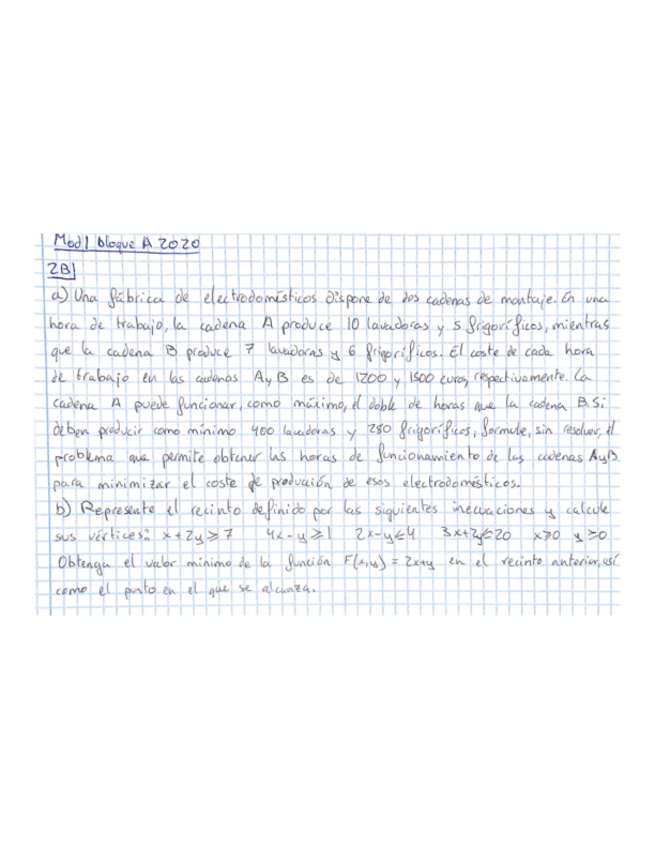 Mod 1 bloque A 2020
2B)
a) Una fábrica de electrodomésticos dispone de dos cadenas de montaje. En una
hora de trabajo, la cadena A produce 10 lavadoras y 5 frigoríficos, mientras
que la cadena B produce 7 lavadoras y 6 frigoríficos. El coste de cada hora
de trabajo en las cadenas A y B es de 1200 y 1500 euros, respectivamente. La
cadena A puede funcionar, como máximo, el doble de horas que la cadena B. Si
deben producir como mínimo 400 lavadoras y 280 frigoríficos, formule, sin resolver, el
problema que permite obtener las horas de funcionamiento de las cadenas A y B
para minimizar el coste de producción de esos electrodomésticos.
b) Represente el recinto definido por las siguientes inecuaciones y calcule
sus vértices: x+2y⩾7 4x-y⩾1 2x-y⩽4 3x+2y⩽20 x⩾0 y⩾0
Obtenga el valor mínimo de la función F(x,y) = 2x+y en el recinto anterior, así
como el punto en el que se alcanza.